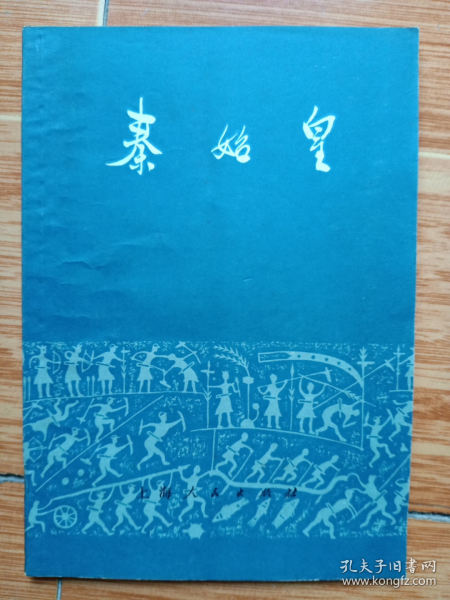 秦始皇
上海人民出版社
孔夫子旧书网
www.kongfz.com